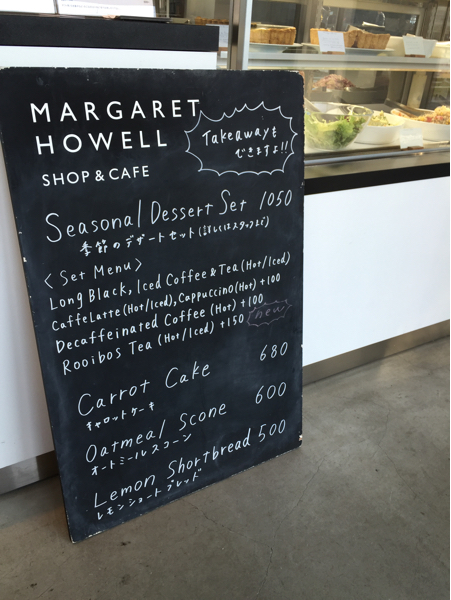 MARGARET
HOWELL
SHOP & CAFE
Takeawayも
できますよ!!
Seasonal Dessert Set 1050
季節のデザートセット(詳しくはスタッフまで)
〈Set Menu〉
Long Black, Iced Coffee & Tea (Hot/Iced)
CaffeLatte (Hot/Iced), Cappuccino (Hot) +100
Decaffeinated Coffee (Hot) +100
Rooibos Tea (Hot/Iced) +150 new
Carrot Cake 680
キャロットケーキ
Oatmeal Scone 600
オートミールスコーン
Lemon Shortbread 500
レモンショートブレッド